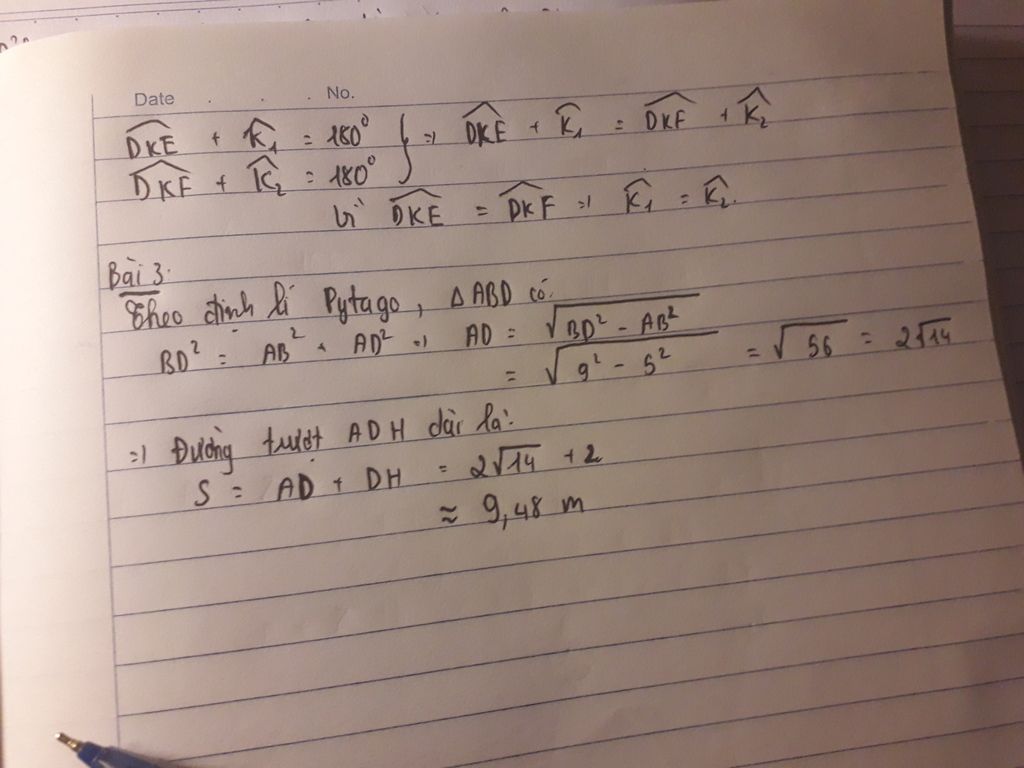 Date . . . No.
\widehat{DKE} + \widehat{K_1} = 180⁰ } => \widehat{DKE} + \widehat{K_1} = \widehat{DKF} + \widehat{K_2}
\widehat{DKF} + \widehat{K_2} = 180⁰
Vì \widehat{DKE} = \widehat{DKF} => \widehat{K_1} = \widehat{K_2}.
Bài 3:
Theo định lí Pytago, Δ ABD có:
BD² = AB² + AD² => AD = √(BD² - AB²)
= √(9² - 5²) = √56 = 2√14
=> Đường trượt ADH dài là:
S = AD + DH = 2√14 + 2
≈ 9,48 m